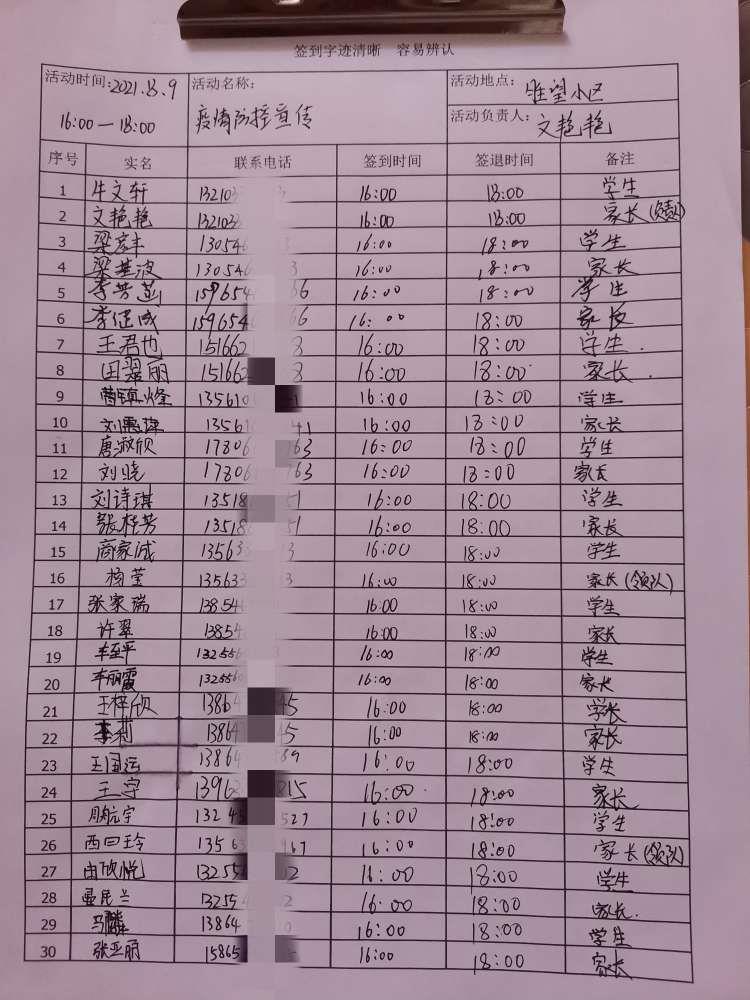 签到字迹清晰 容易辨认
活动时间:2021.8.9 活动名称: 活动地点: 望小区
16:00—18:00 疫情防控宣传 活动负责人: 文艳艳
序号 实名 联系电话 签到时间 签退时间 备注
1 牛文轩 132103 16:00 18:00 学生
2 文艳艳 132103 16:00 18:00 家长(负责)
3 梁彦丰 130546 3 16:00 18:00 学生
4 梁基波 130546 3 16:00 18:00 家长
5 159654 66 16:00 18:00 学生
6 李健成 159654 66 16:00 18:00 家长
7 王君也 151662 8 16:00 18:00 学生
8 田翠丽 151662 8 16:00 18:00 家长
9 曹镇烽 135610 1 16:00 18:00 学生
10 13561 41 16:00 18:00 家长
11 唐淑欣 17806 163 16:00 18:00 学生
12 刘晓 17806 763 16:00 18:00 家长
13 刘诗琪 13518 51 16:00 18:00 学生
14 张桂芳 13518 51 16:00 18:00 家长
15 商家诚 135633 3 16:00 18:00 学生
16 杨莹 135633 3 16:00 18:00 家长(领队)
17 张家瑞 138546 16:00 18:00 学生
18 许翠 13854 16:00 18:00 家长
19 132556 16:00 18:00 学生
20 丽霞 132556 16:00 18:00 家长
21 王梓欣 13864 45 16:00 18:00 学长
22 李莉 13864 45 16:00 18:00 家长
23 王国运 13864 569 16:00 18:00 学生
24 王宇 13963 815 16:00 18:00 家长
25 航宇 13245 527 16:00 18:00 学生
26 13563 967 16:00 18:00 家长(领队)
27 由欣悦 13255 2 16:00 18:00 学生
28 13255 2 16:00 18:00 家长
29 马麟 13864 16:00 18:00 学生
30 张亚丽 15865 16:00 18:00 家长